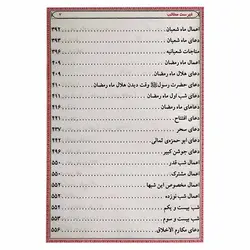 فهرست مطالب ۷
اعمال ماه شعبان ۳۹۲
دعای ماه شعبان ۳۹۳
مناجات شعبانیه ۳۹۶
اعمال ماه رمضان ۴۰۹
دعای هلال ماه رمضان ۴۰۹
دعای حضرت رسول ﷺ وقت دیدن هلال ماه رمضان ۴۱۰
اعمال شب اول ماه رمضان ۴۱۱
دعاهای ماه رمضان ۴۱۶
دعای افتتاح ۴۲۱
دعای سحر ۴۳۷
دعای ابو حمزه‌ی ثمالی ۴۴۲
دعای جوشن کبیر ۴۹۶
اعمال شب قدر ۵۵۰
اعمال مشترک ۵۵۰
اعمال مخصوص این شبها ۵۵۲
اعمال شب نوزده ۵۵۲
شب بیست و یکم ۵۵۳
شب بیست و سوم ۵۵۳
دعای مکارم الاخلاق ۵۵۶